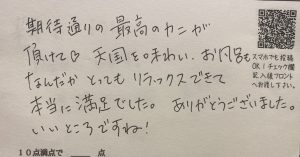 期待通りの最高のカニが
頂けて♡ 天国を味わい、お風呂も
なんだかとってもリラックスできて
本当に満足でした。 ありがとうございました。
いいところですね!
スマホでも投稿
OK!チェック欄
記入後フロント
へお渡し下さい。
10点満点で 点